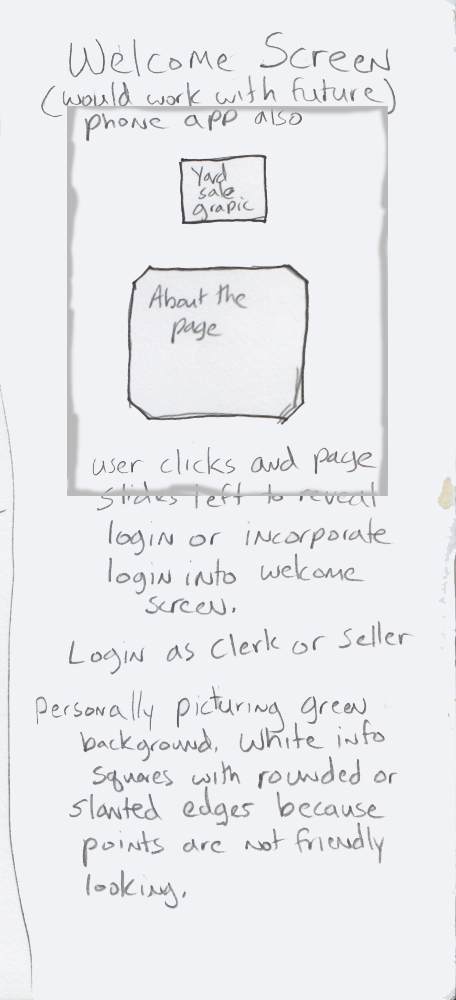 Welcome Screen
(would work with future)
phone app also
Yard
sale
grapic
About the
page
user clicks and page
slides left to reveal
login or incorporate
login into welcome
screen.
Login as Clerk or Seller
Personally picturing green
background. White info
squares with rounded or
slanted edges because
points are not friendly
looking.